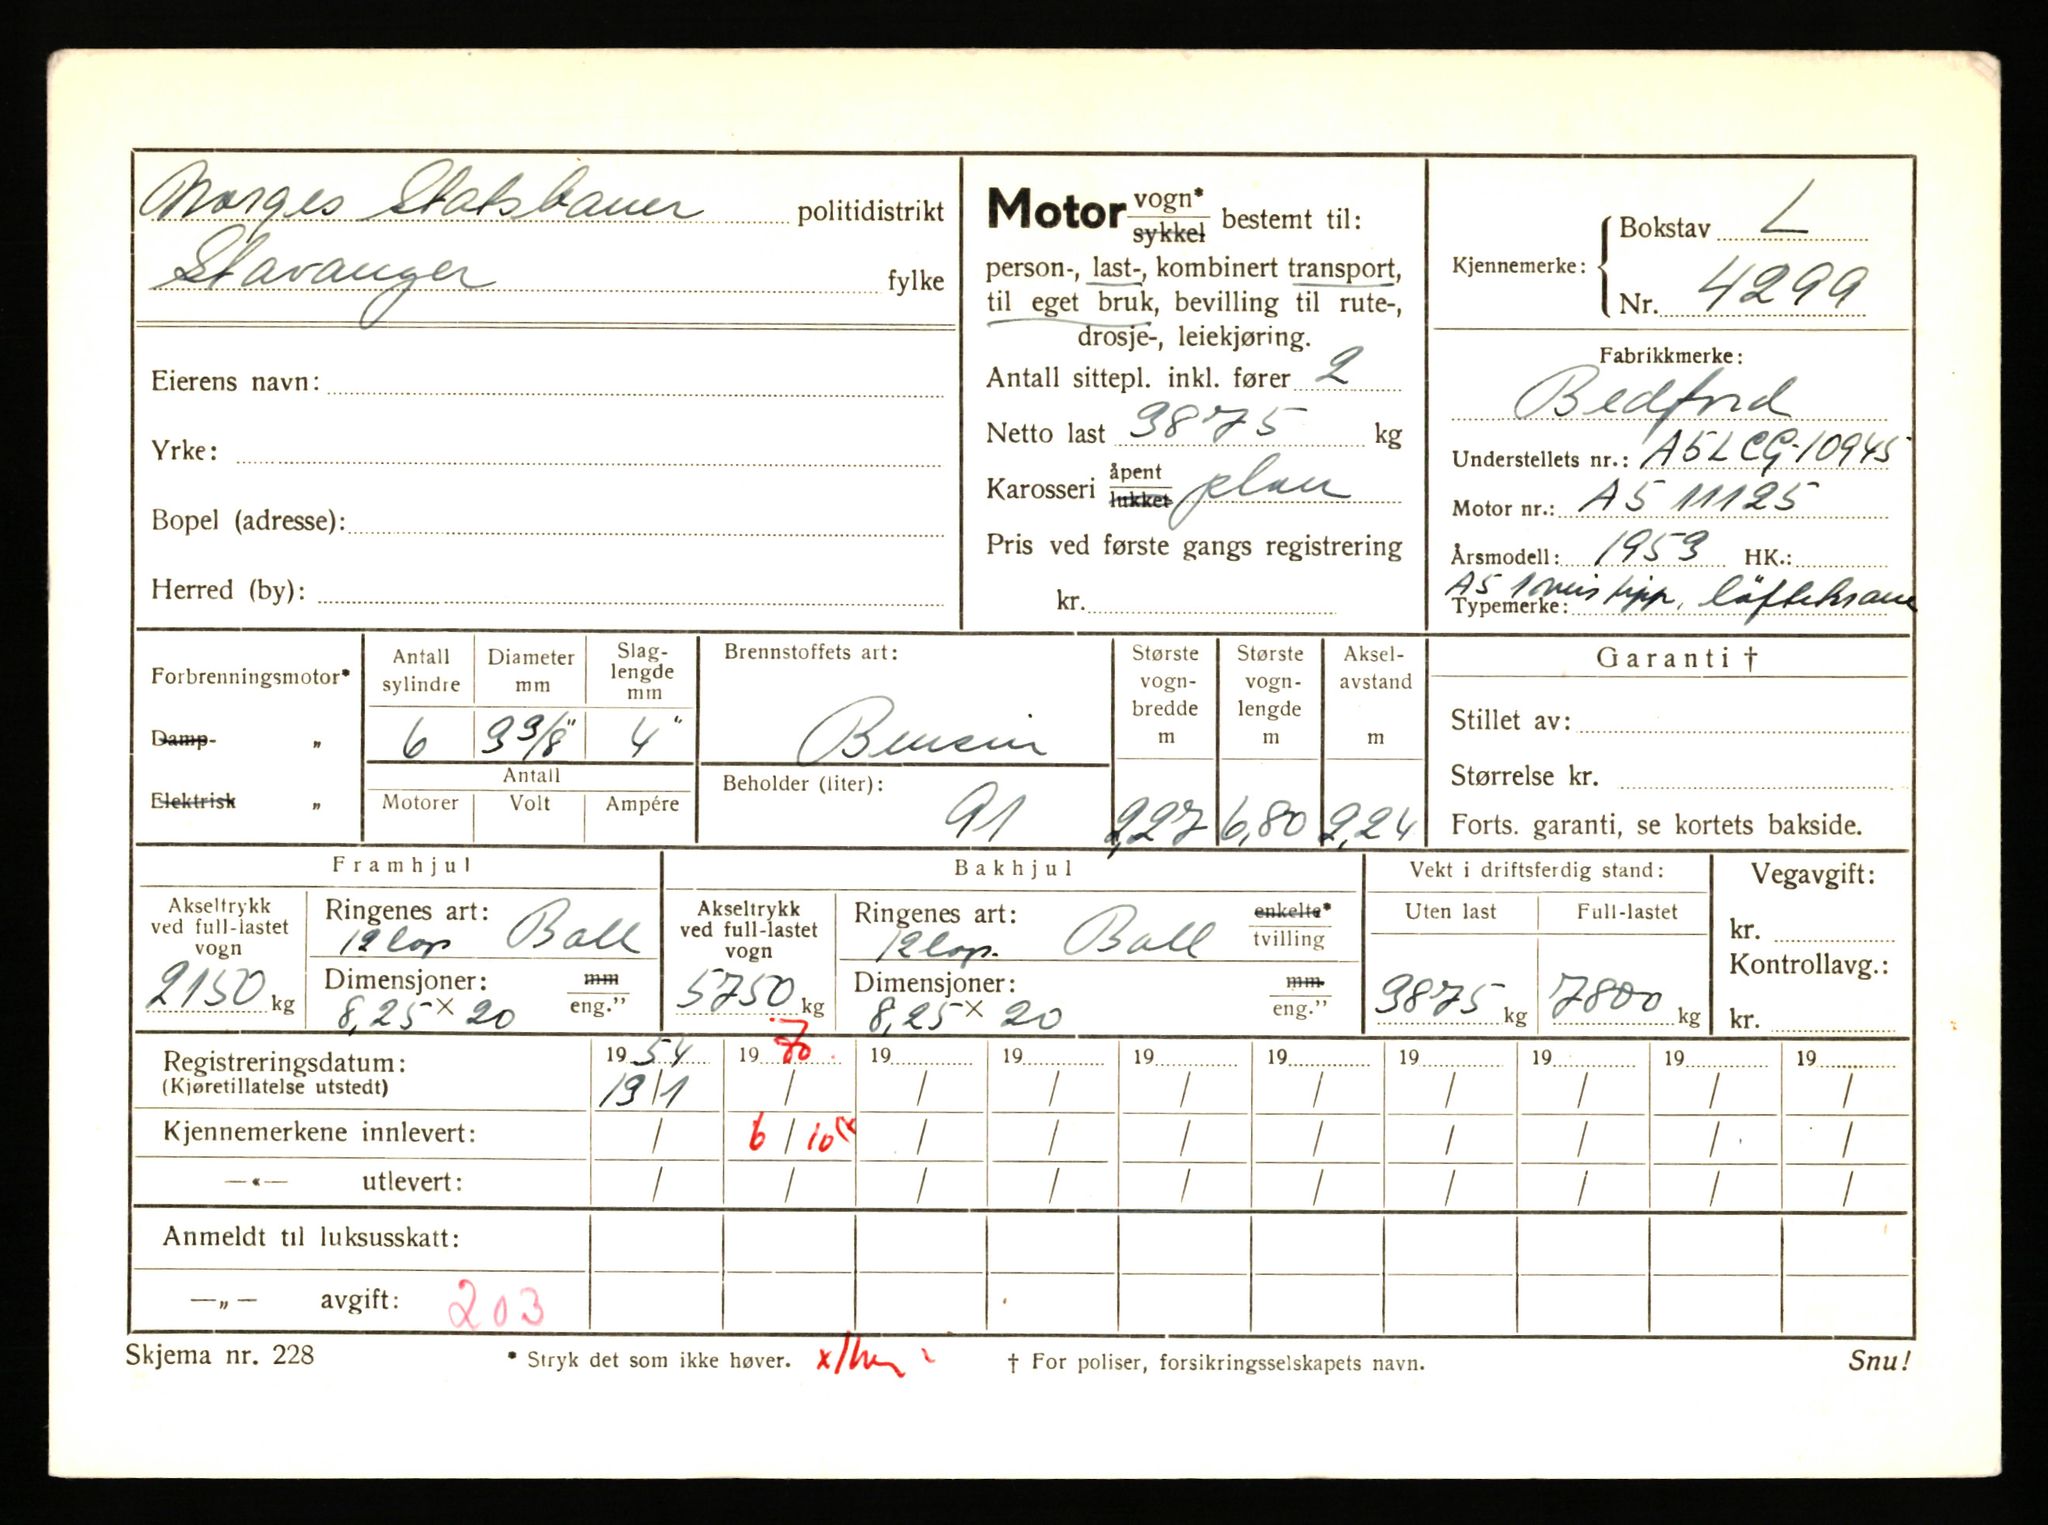 Norges Statsbaner politidistrikt
Stavanger fylke
Eierens navn:
Yrke:
Bopel (adresse):
Herred (by):
Motor vogn* / sykkel bestemt til:
person-, last-, kombinert transport,
til eget bruk, bevilling til rute-,
drosje-, leiekjøring.
Antall sittepl. inkl. fører 2
Netto last 3875 kg
Karosseri åpent / lukket plan
Pris ved første gangs registrering
kr.
Kjennemerke: Bokstav L
Nr. 4299
Fabrikkmerke:
Bedford
Understellets nr.: A5LCG-10945
Motor nr.: A5 11125
Årsmodell: 1953 HK.:
Typemerke: A5 tipp, löftekrane
Forbrenningsmotor*
Damp- „
Elektrisk „
Antall sylindre 6
Diameter mm 3 3/8"
Slag-lengde mm 4"
Antall
Motorer Volt Ampére
Brennstoffets art:
Bensin
Beholder (liter):
91
Største vogn-bredde m 2,27
Største vogn-lengde m 6,80
Aksel-avstand m 2,24
Garanti †
Stillet av:
Størrelse kr.
Forts. garanti, se kortets bakside.
Framhjul
Akseltrykk ved full-lastet vogn 2150 kg
Ringenes art: 12 lap. Ball
Dimensjoner: mm / eng.”
8,25 x 20
Bakhjul
Akseltrykk ved full-lastet vogn 5750 kg
Ringenes art: 12 lap. Ball enkelte* / tvilling
Dimensjoner: mm / eng.”
8,25 x 20
Vekt i driftsferdig stand:
Uten last Full-lastet
3875 kg 7800 kg
Vegavgift:
kr.
Kontrollavg.:
kr.
Registreringsdatum: 19 54 19 70 19 19 19 19 19 19 19 19
(Kjøretillatelse utstedt) 19/1 / / / / / / / / /
Kjennemerkene innlevert: / 6/10 / / / / / / / /
—«— utlevert: / / / / / / / / / /
Anmeldt til luksusskatt:
—„— avgift: 203
Skjema nr. 228
* Stryk det som ikke høver.
† For poliser, forsikringsselskapets navn.
Snu!